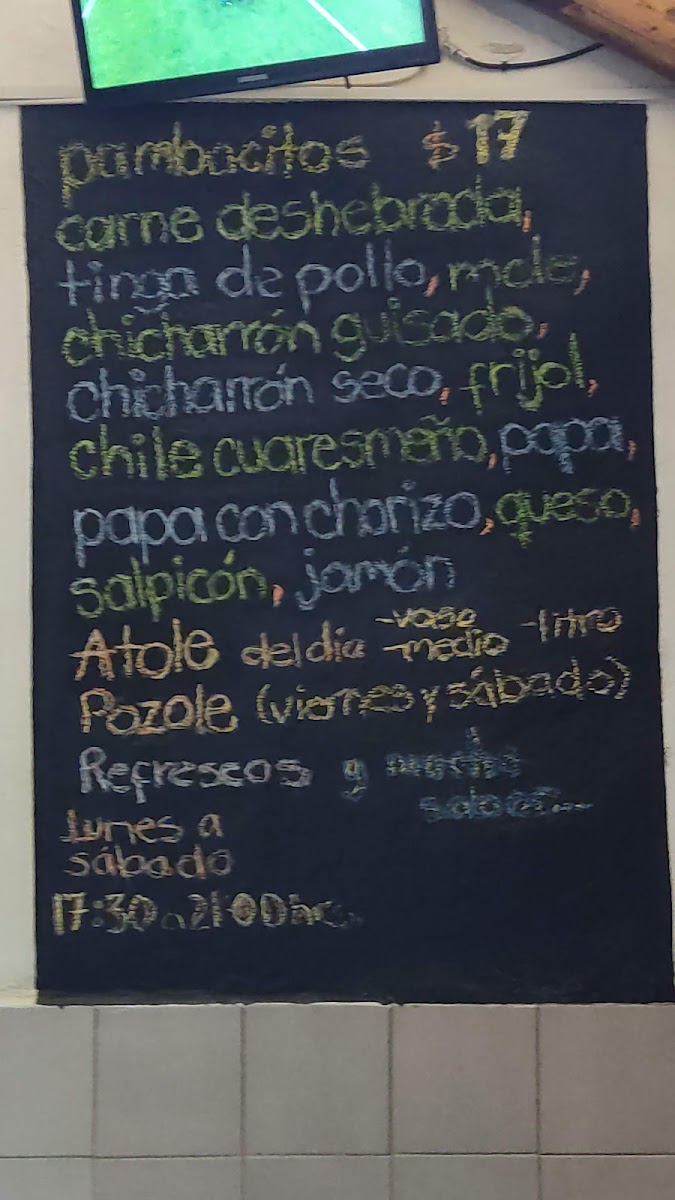 pambacitos $17
carne deshebrada,
tinga de pollo, mole,
chicharrón guisado,
chicharrón seco, frijol,
chile cuaresmeño, papa,
papa con chorizo, queso,
salpicón, jamón
Atole del día -vaso -medio -litro
Pozole (viernes y sábado)
Refrescos y mucho
sabor...
Lunes a
sábado
17:30 a 21:00 hrs.